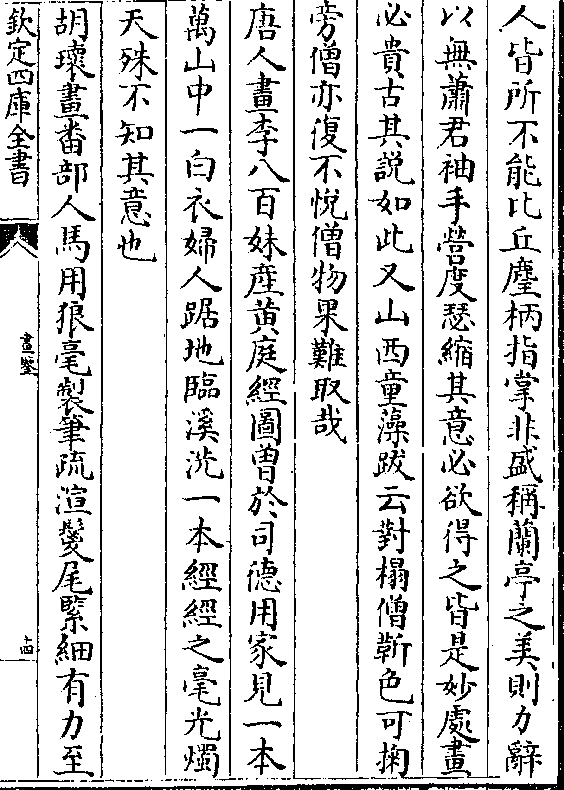 人皆所不能比丘麈柄指掌非盛稱蘭亭之美則力辭
以無蕭君袖手營度瑟縮其意必欲得之皆是妙處畫
必貴古其說如此又山西童藻跋云對榻僧靳色可掬
旁僧亦復不悅僧物果難取哉
唐人畫李八百妹產黄庭經圖曽於司德用家見一本
萬山中一白衣婦人踞地臨溪洗一本經經之毫光燭
天殊不知其意也
胡瓌畫畨部人馬用狼毫製筆疏渲鬃尾緊細有力至
欽定四庫全書
畫鑒
十四